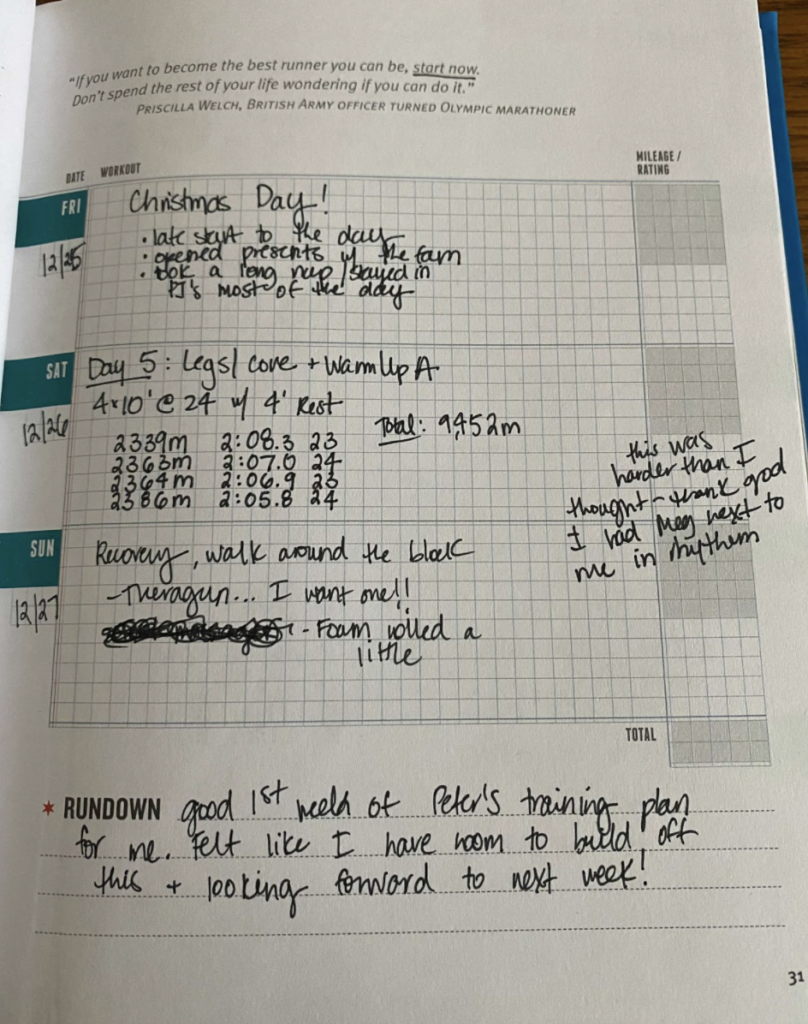 "If you want to become the best runner you can be, start now.
Don't spend the rest of your life wondering if you can do it."
PRISCILLA WELCH, BRITISH ARMY OFFICER TURNED OLYMPIC MARATHONER
DATE WORKOUT MILEAGE / RATING
FRI
12/25
Christmas Day!
• late start to the day
• opened presents w/ the fam
• took a long nap / stayed in
PJ's most of the day
SAT
12/26
Day 5: Legs/ core + Warm Up A
4x10' @ 24 w/ 4' Rest
Total: 9,452m
2339m 2:08.3 23
2363m 2:07.0 24
2364m 2:06.9 23
2386m 2:05.8 24
this was
harder than I
thought - thank god
I had Meg next to
me in rhythem
SUN
12/27
Recovery, walk around the block
- Theragun... I want one!!
- Foam rolled a
little
TOTAL
* RUNDOWN good 1st week of Peter's training plan
for me. Felt like I have room to build off
this + looking forward to next week!
31